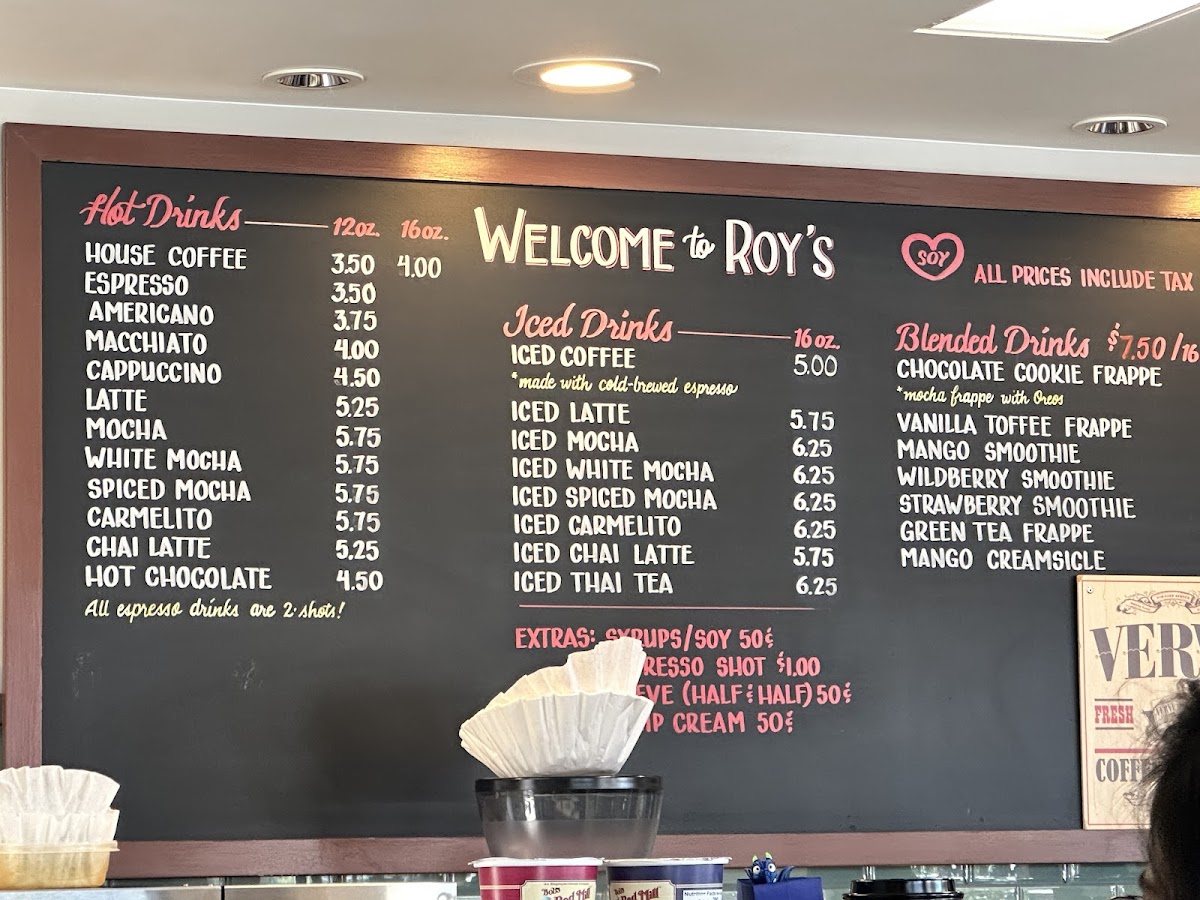 Hot Drinks 12oz. 16oz.
HOUSE COFFEE 3.50 4.00
ESPRESSO 3.50
AMERICANO 3.75
MACCHIATO 4.00
CAPPUCCINO 4.50
LATTE 5.25
MOCHA 5.75
WHITE MOCHA 5.75
SPICED MOCHA 5.75
CARMELITO 5.75
CHAI LATTE 5.25
HOT CHOCOLATE 4.50
All espresso drinks are 2-shots!
WELCOME to ROY'S
Iced Drinks 16 oz.
ICED COFFEE 5.00
*made with cold-brewed espresso
ICED LATTE 5.75
ICED MOCHA 6.25
ICED WHITE MOCHA 6.25
ICED SPICED MOCHA 6.25
ICED CARMELITO 6.25
ICED CHAI LATTE 5.75
ICED THAI TEA 6.25
EXTRAS: SYRUPS/SOY 50¢
RESSO SHOT $1.00
EVE (HALF & HALF) 50¢
IP CREAM 50¢
SOY
ALL PRICES INCLUDE TAX
Blended Drinks $7.50/16
CHOCOLATE COOKIE FRAPPE
*mocha frappe with Oreos
VANILLA TOFFEE FRAPPE
MANGO SMOOTHIE
WILDBERRY SMOOTHIE
STRAWBERRY SMOOTHIE
GREEN TEA FRAPPE
MANGO CREAMSICLE
VER
FRESH
COFF
Bob's
Red Mill
Bob's
Red Mill
Nutrition Facts